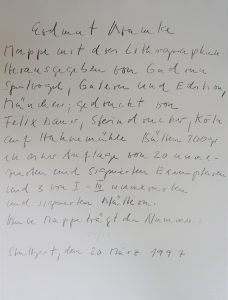 Erdmut Bramke
Mappe mit drei Lithographien
Herausgegeben von Gudrun
Spielvogel, Galerie und Edition,
München, gedruckt von
Felix Bauer, Steindrucker, Köln
auf Hahnemühle Bütten 300gr
in einer Auflage von 20 nume-
rierten und signierten Exemplaren
und 3 von I - III numerierten
und signierten Blättern.
Mappe trägt die Nummer:
Stuttgart, den 20. März 1997